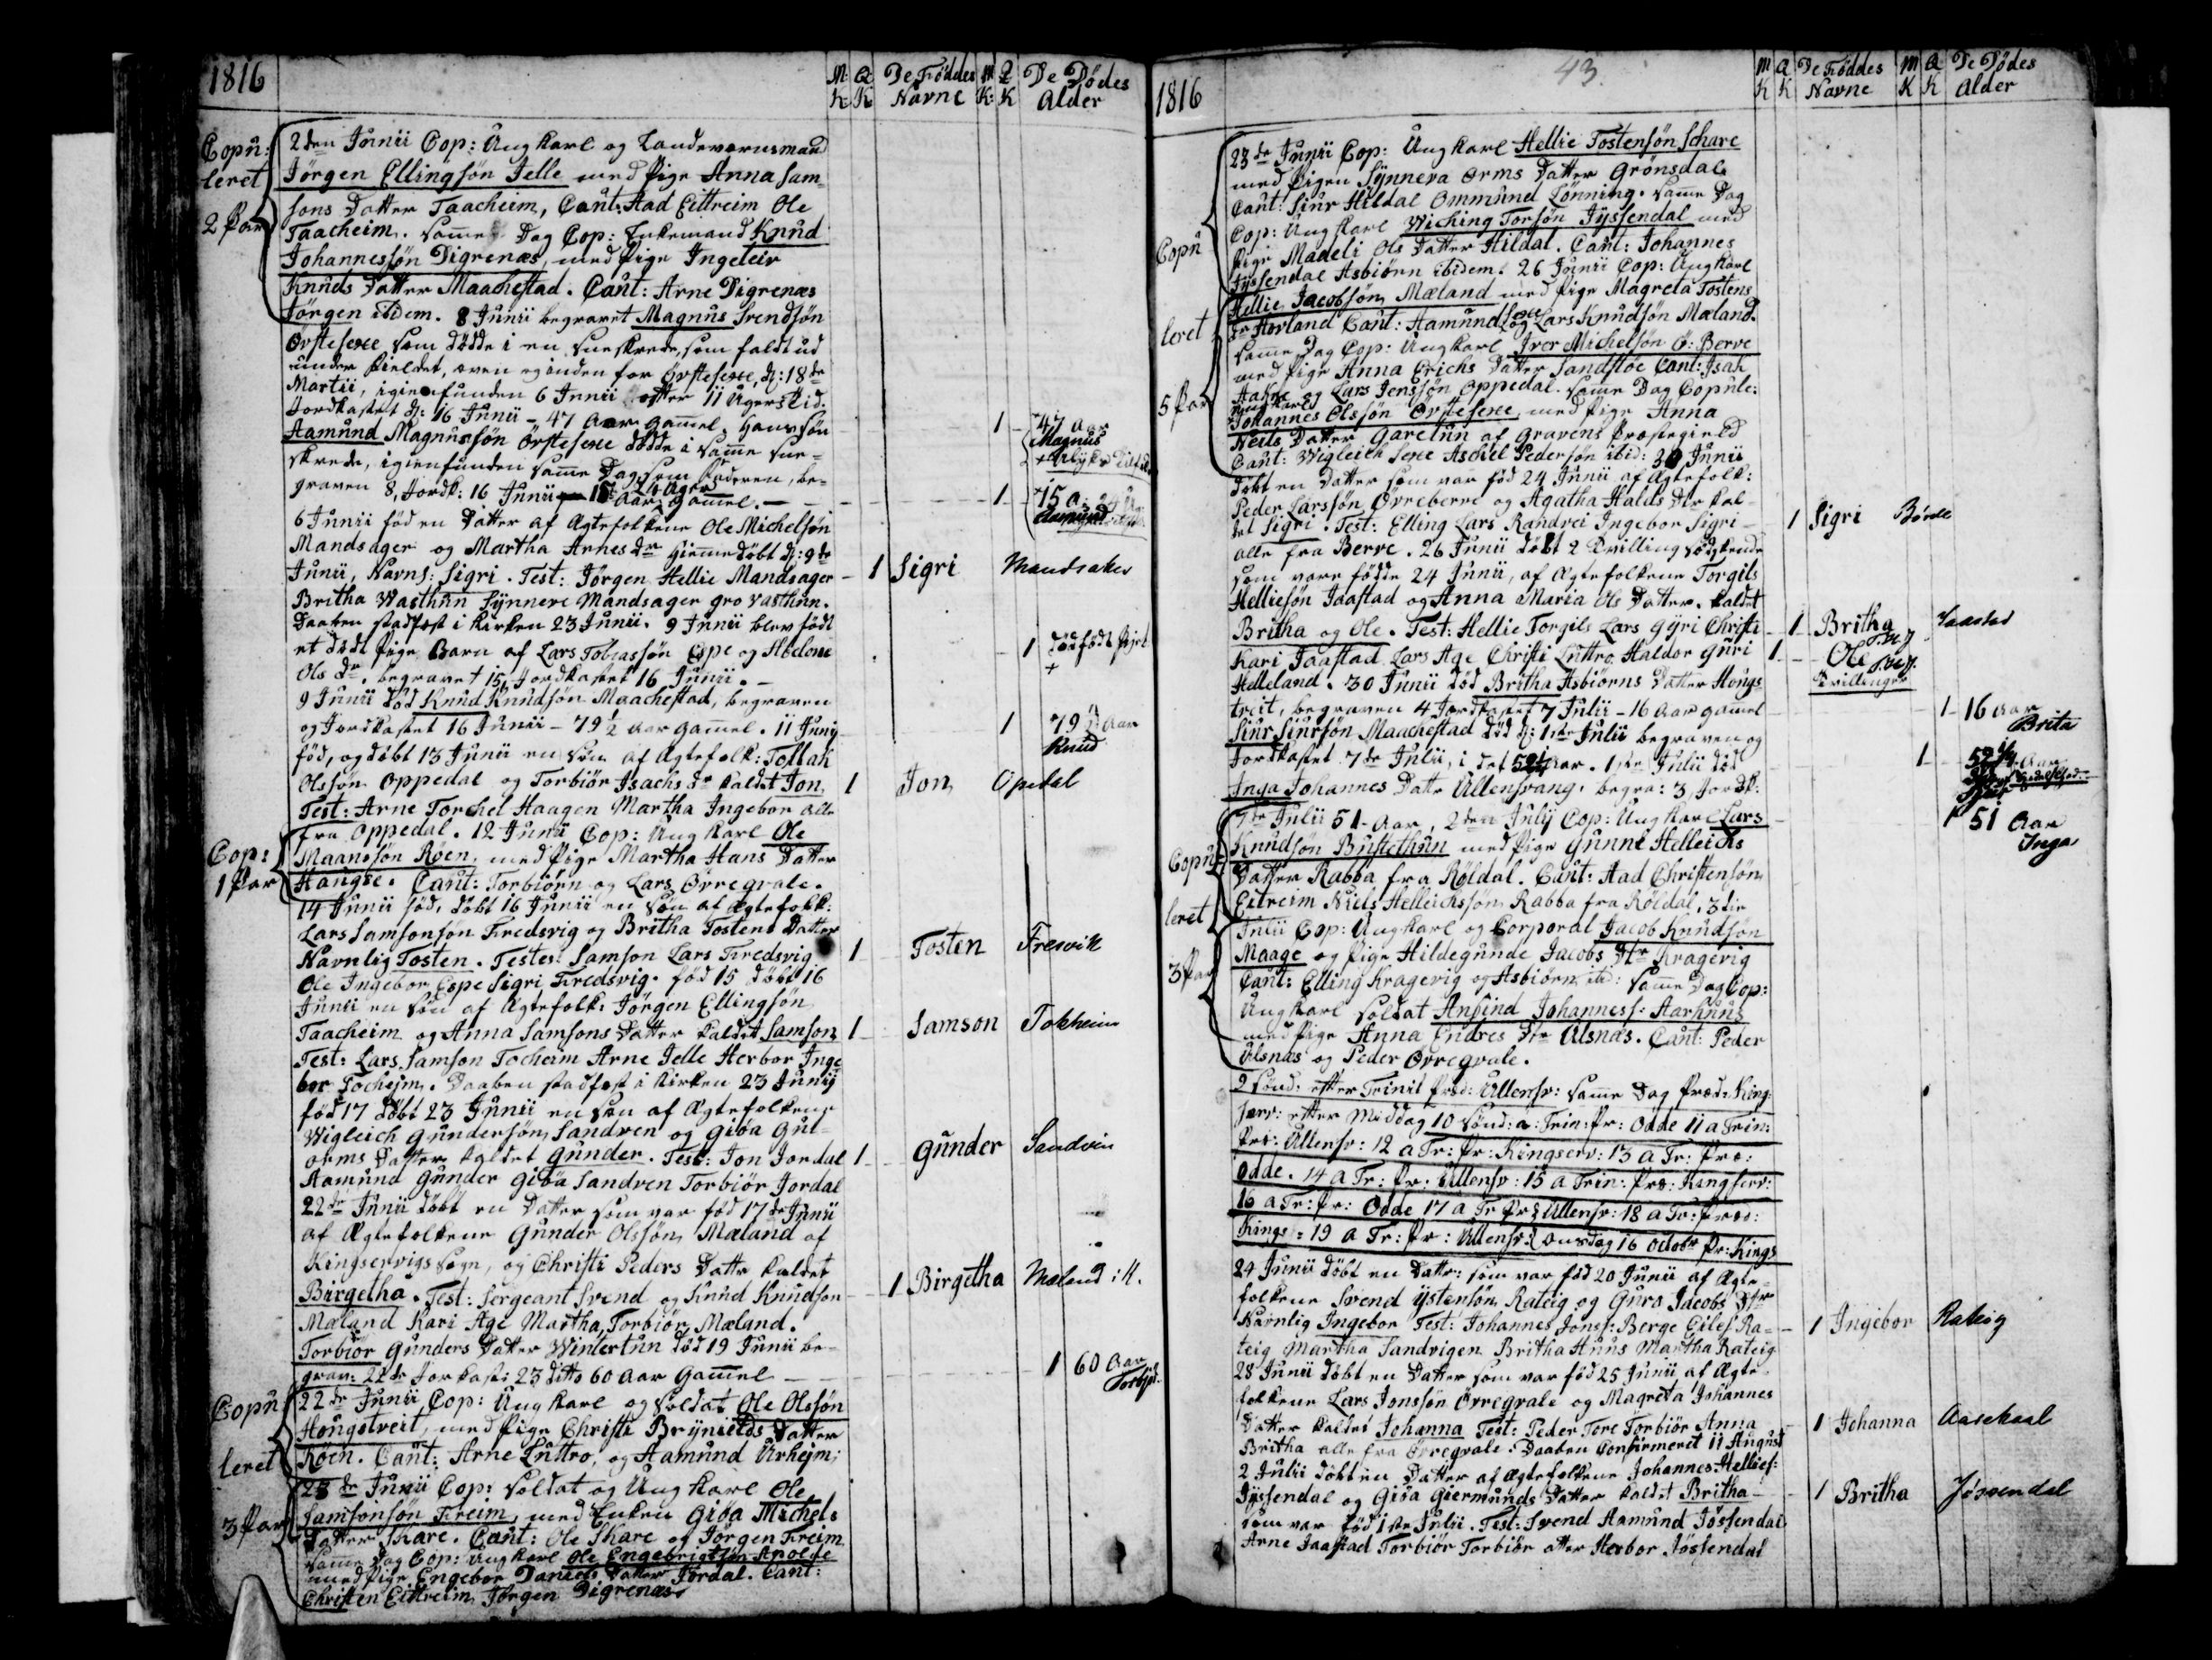 1816
M: Q De Föddes M Q De Dödes
K: K Navne K: K Alder
Copu:
leret
2 Par
2den Junii Cop: Ung Karl og Landeværnsmand
Jörgen Ellingsön Jelle med Pige Anna Sam-
sons Datter Taacheim, Caut: Aad Eittreim Ole
Taacheim. Samme Dag Cop: Enkemand Knud
Johannessön Digrenæs, med Pige Ingeleiv
Knuds Datter Maachestad. Caut: Arne Digrenæs
Jörgen ibidem. 8 Junii begravet Magnus Svendsön
Örstesexe som dödde i en Sneskrede, som faldt ud
under Fieldet, oven og inden for Örstesexe, d: 18de
Martii, igienfunden 6 Junii efter 11 Ugers Tid.
Jordkastet d: 16 Junii - 47 Aar gamel. Hans Sön
Aamund Magnussön Örstesexe dödde i samme Sne-
skrede, igienfunden samme Dag som Faderen, be-
graven 8, Jordk: 16 Junii 15 Aar gamel. -
6 Junii föd en Datter af Ægtefolkene Ole Michelsön
Mandsager og Martha Arnes dr Hiemmedöbt d: 9de
Junii, Navns: Sigri. Test: Jörgen Hellie Mandsager
Britha Wasthun Synneve Mandsager Gro Vasthun.
Daaben stadfæst i Kirken 23 Junii. 9 Junii blev födt
et dödt Pige Barn af Lars Tobiassön Espe og Abelone
Ols dr. begravet 15, Jordkastet 16 Junii. -
9 Junii död Knud Knudsön Maachestad, begraven
og Jordkastet 16 Junii - 79½ Aar gamel. 11 Junij
föd, og döbt 13 Junii en Sön af Ægtefolk: Tollak
Olssön Oppedal og Torbiör Isachs dr kaldet Jon
Test: Arne Torchel Haagen Martha Ingebor alle
fra Oppedal. 12 Junii Cop: Ung Karl Ole
Maanssön Röen, med Pige Martha Hans Datter
Haugse. Caut: Torbiörn og Lars Örregvale.
14 Junii föd, döbt 16 Junii en Sön af Ægtefolk:
Lars Samsonsön Fredsvig og Britha Tostens Datter
Navnlig Tosten. Testes: Samson Lars Fredsvig
Ole Ingebor Espe Sigri Fredsvig. föd 15 döbt 16
Junii en Sön af Ægtefolk: Jörgen Ellingsön
Taacheim og Anna Samsons Datter kaldet Samson
Test: Lars Samson Tocheim Arne Jelle Herbor Inge
bor Tochejm. Daaben stadfæst i Kirken 23 Junij
föd 17 döbt 23 Junii en Sön af Ægtefolkene
Wigleich Gundersön Sandven og Giöa Gut-
orms Datter kaldet Gunder. Test: Jon Jordal
Aamund Gunder Giöa Sandven Torbiör Jordal
22de Junii döbt en Datter som var föd 17de Junii
af Ægtefolkene Gunder Olssön Mæland af
Kingservigs Sogn, og Christi Peders Dattr kaldet
Birgetha. Test: Sergeant Svend og Knud Knudson
Mæland Kari Age Martha, Torbiör Mæland.
Torbiör Gunders Datter Wintertun död 19 Junii be-
grav: 22de Jordkast: 23 ditto 60 Aar Gammel
22de Junii Cop: Ung Karl og Soldat Ole Olssön
Hougstveit, med Pige Christi Brynields Datter
Röen. Caut: Arne Luttro, og Aamund Urhejm;
23de Junii Cop: Soldat og Ung Karl Ole
Samsonsön Freim, med Enken Giöa Michels
Datter Share. Caut: Ole Share og Jörgen Freim
Samme Dag Cop: Ung Karl Ole Engebrigtsön Apolde
med Pige Engebor Daniels Datter Jordal. Caut:
Christen Eittreim, Jörgen Digrenæs
Cop:
1 Par
Copu
leret
3 Par
1 47 Aar
Magnus
1 15 A:
Aamund
1 Sigri Mandsaker
1 dödfödt Pigeb
+
1 79½ Aar
Knud
1 Jon Opedal
1 Tosten Fresvik
1 Samson Tokheim
1 Gunder Sandvin
1 Birgetha Mæland: K.
1 60 Aar
Torbjör
1816
43
M Q De Föddes M Q De Dödes
K K Navne K K Alder
Copu
leret
5 Par
23de Junii Cop: Ung Karl Hellie Tostensön Schare
med Pigen Synneva Orms Datter Grönsdal.
Caut: Siur Hildal Ommund Lönning. Samme Dag
Cop: Ung Karl Wiching Torsön Jyssendal med
Pige Madeli Ols Datter Hildal. Caut: Johannes
Jyssendal Asbiörn ibidem. 26 Junii Cop: Ung Karl
Hellie Jacobsön Mæland med Pige Magreta Tostens
dr Hovland Caut: Aamund Sexe og Lars Knudsön Mæland.
Samme Dag Cop: Ung Karl Iver Michelsön Ö: Berve
med Pige Anna Erichs Datter Sandstöe Caut: Isak
Aasne og Lars Jenssön Oppedal. Samme Dag Copule:
Ung Karl
Johannes Olssön Örstesexe med Pige Anna
Neils Datter Garetun af Gravens Præstegield
Caut: Wigleich Sexe Aschel Pedersön ibid: 30 Junii
döbt en Datter som var föd 24 Junii af Ægtefolk:
Peder Larssön Övreberve og Agatha Halds Dtr kal-
det Sigri. Test: Elling Lars Randvei Ingebor Sigri
alle fra Berve. 26 Junii döbt 2 Tvilling Sødskende
som vare födde 24 Junii, af Ægtefolkene Torgils
Helliesön Jaastad og Anna Maria Ols Datter. kaldet
Britha og Ole. Test: Hellie Torgils Lars Gyri Christi
Kari Jaastad Lars Age Christi Luttro, Haldor Guri
Helleland. 30 Junii död Britha Asbiörns Datter Hougs
tveit, begraven 4 Jordkastet 7 Julii - 16 Aar gamel
Siur Siursön Maachestad död d: 1ste Julii begraven og
Jordkastet 7de Julii, i det 52¼ Aar. 1ste Julii död
Inga Johannes Dattr Ullensvang, begra: 3 Jordk:
7de Julii 51 Aar, 2den Julij Cop: Ung Karl Lars
Knudsön Bustethun med Pige Gunne Helleichs
Datter Rabba fra Röldal. Caut: Aad Christensön
Eitreim Niels Helleichssön Rabba fra Röldal. 3die
Julii Cop: Ung Karl og Corporal Jacob Knudsön
Maage og Pige Hildegunde Jacobs Dtr Kragevig
Caut: Elling Kragevig og Asbiörn itd: Samme Dag Cop:
Ung Karl Soldat Anfind Johanness: Aarhuus
med Pige Anna Endres Dtr Ulsnæs. Caut: Peder
Ulsnæs og Peder Örregvale.
Copu
leret
3 Par
9 Sönd: efter Trinit Præd: Ullensv: Samme Dag Præd: King-
serv: efter Middag 10 Sönd: a: Trin: Pr: Odde 11 a Trin:
Pr: Ullensv: 12 a Tr: Pr: Kingserv: 13 a Tr: Præ:
Odde. 14 a Tr: Pr: Ullensv: 15 a Trin: Præ: Kingserv:
16 a Tr: Pr: Odde 17 a Tr Pr: Ullensv: 18 a Tr: Præd:
Kings: 19 a Tr: Pr: Ullensv: Onsdag 16 Octobr Pr: Kings
24 Junii döbt en Dattr: som var föd 20 Junii af Ægte-
folkene Svend Ystensön Rateig og Guro Jacobs Dtr
Navnlig Ingebor Test: Johannes Jons: Berge Eilef Ra-
teig Martha Sandvigen Britha Huus Martha Rateig
28 Junii döbt en Datter som var föd 25 Junii af Ægte-
folkene Lars Jonsön Örregvale og Magreta Johannes
Datter kaldet Johanna Test: Peder Tore Torbiör Anna
Britha alle fra Örregvale. Daaben Confirmeret 11 August
2 Julii döbt en Datter af Ægtefolkene Johannes Hellies:
Jyssendal og Giöa Giermunds Datter kaldet Britha
som var föd 1ste Julii. Test: Svend Aamund Jössendal
Arne Jaastad Torbiör Torbiör atter Herbor Jössendal
1 Sigri Börve
1 Britha Jaastad
1 Ole
Tvillinger
1 16 Aar
Brita
1 52¼ Aar
1 51 Aar
Inga
1 Ingebor Rateig
1 Johanna Aasekval
1 Britha Jösendal